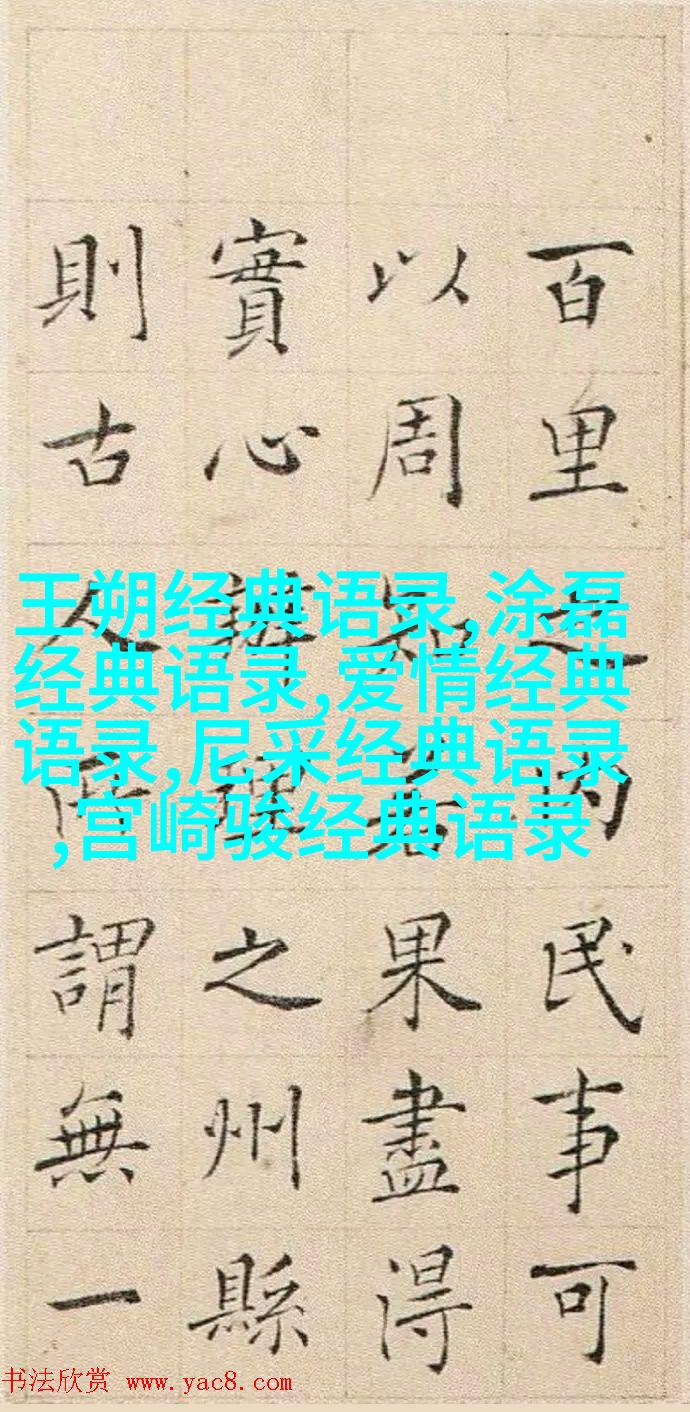 百里之内民事可
以周知若果盡得
實心辦理之州縣
則古人所謂無一
王朔经典语录,涂磊
经典语录,爱情经典
语录,尼采经典语录
,宫崎骏经典语录
书法欣赏 www.yac8.com